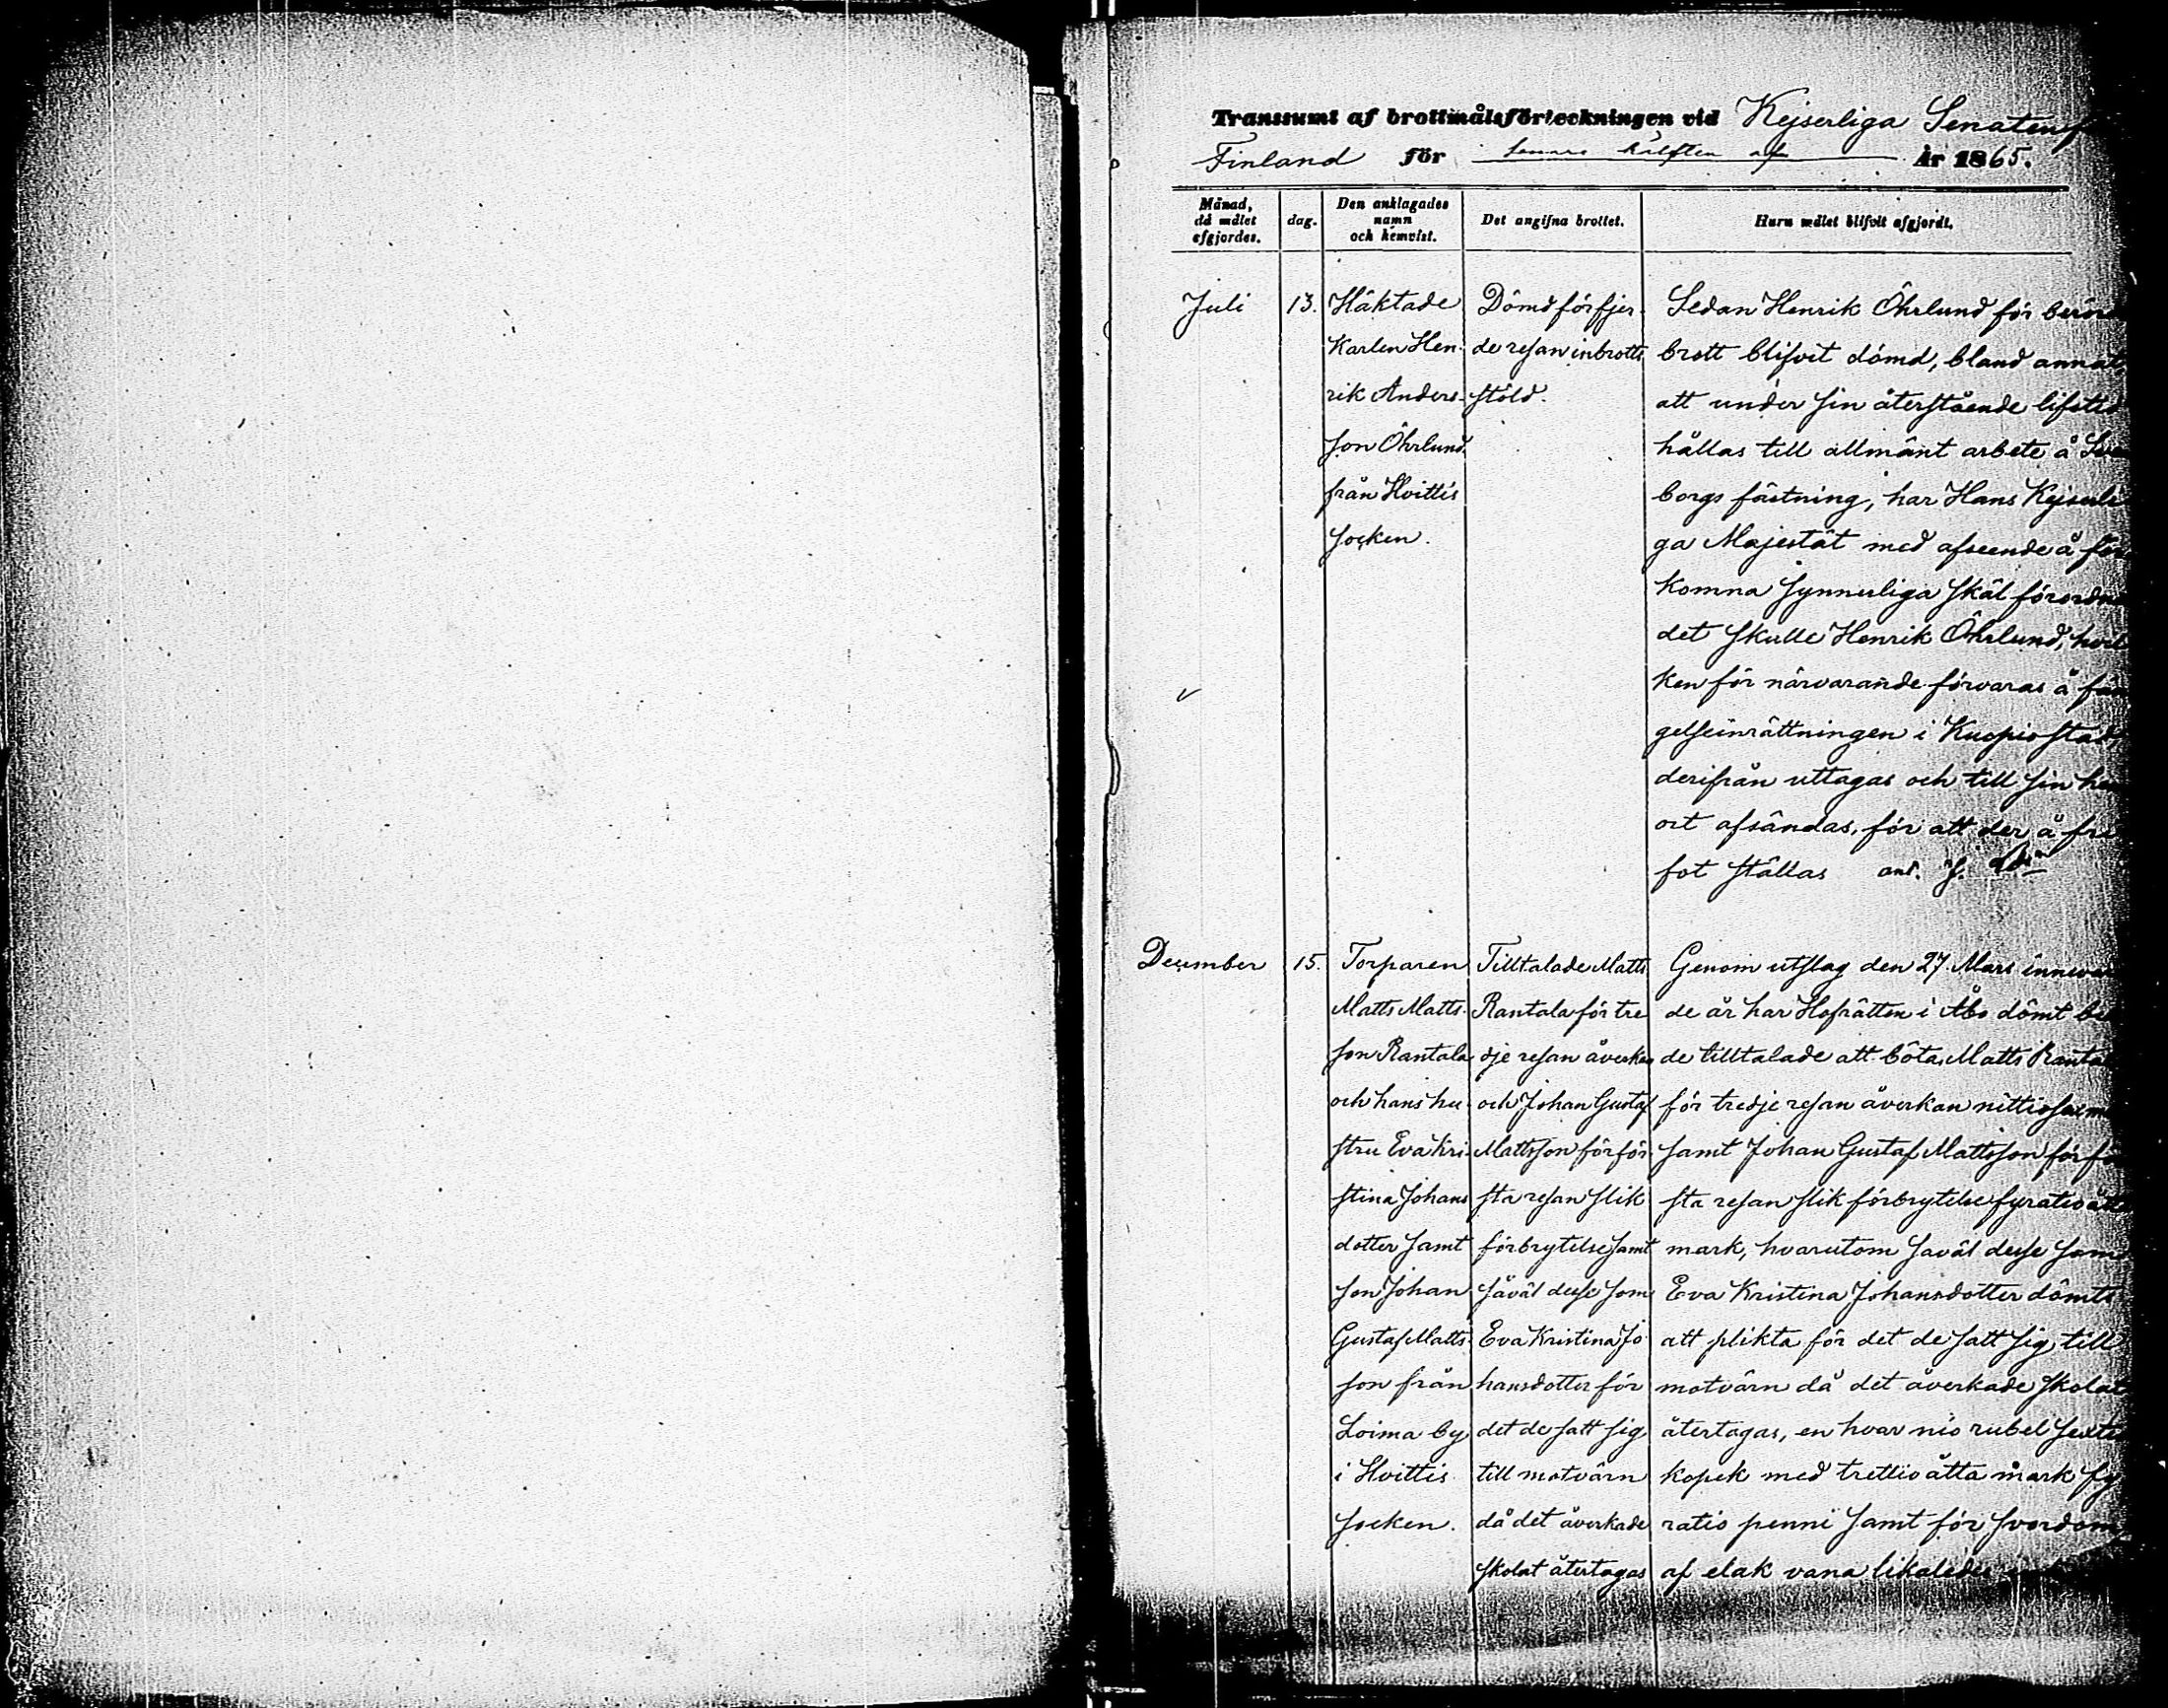 Transsumt af brottmålsförteckningen vid Kejserliga Senaten f
Finland för senare hälften af År 1865.
Månad, då målet afgjordes.
dag.
Den anklagades namn och hemvist.
Det angifna brottet.
Huru målet blifvit afgjordt.
Juli
13.
Häktade
Karlen Hen-
rik Anders-
son Öhrlund
från Hvittis
socken.
Dömd för fjer-
de resan inbrotts
stöld.
Sedan Henrik Öhrlund för berörd
brott blifvit dömd, bland annat,
att under sin återstående lifstid
hållas till allmänt arbete å Svea
borgs fästning, har Hans Kejserli
ga Majestät med afseende å före
komna synnerliga skäl förordnat
det skulle Henrik Öhrlund, hvil
ken för närvarande förvaras å fän
gelseinrättningen i Kuopio stad,
derifrån uttagas och till sin hem
ort afsändas, för att der å fri
fot ställas
December
15.
Torparen
Matts Matts-
son Rantala
och hans hu-
stru Eva Kri-
stina Johans
dotter samt
son Johan
Gustaf Matts
son från
Loima by
i Hvittis
socken.
Tilltalade Matts
Rantala för tre
dje resan åverkan
och Johan Gustaf
Mattsson för för-
sta resan slik
förbrytelse samt
såväl desse som
Eva Kristina Jo
hansdotter för
det de satt sig
till motvärn
då det åverkade
skolat återtagas
Genom utslag den 27 Mars inneva
de år har Hofrätten i Åbo dömt be
de tilltalade att böta, Matts Ranta
för tredje resan åverkan nittiosex m
samt Johan Gustaf Mattsson för fö
sta resan slik förbrytelse fyratioåtta
mark, hvarutom såväl desse som
Eva Kristina Johansdotter dömts
att plikta för det de satt sig till
motvärn då det åverkade skolat
återtagas, en hvar nio rubel sextio
kopek med trettioåtta mark fy
ratio penni samt för svordom
af elak vana likaledes